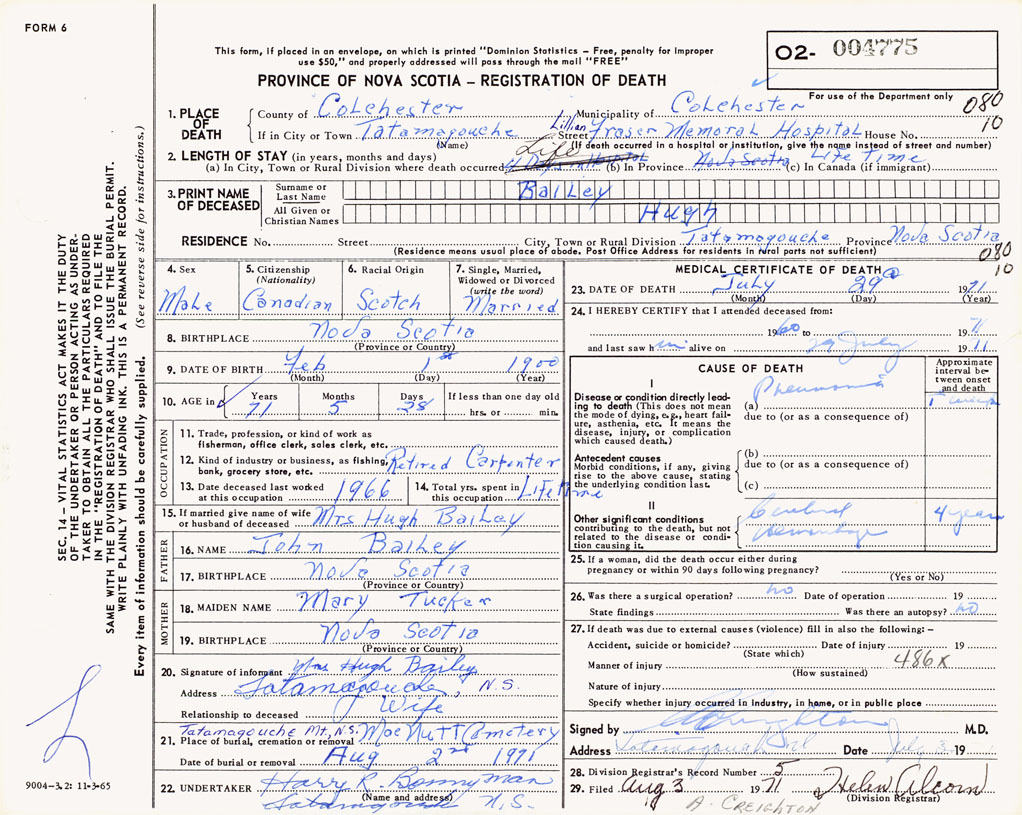 FORM 6
This form, if placed in an envelope, on which is printed "Dominion Statistics – Free, penalty for improper
use $50," and properly addressed will pass through the mail "FREE"
O2- 004775
PROVINCE OF NOVA SCOTIA – REGISTRATION OF DEATH
For use of the Department only
080
10
1. PLACE OF DEATH
County of Colchester Municipality of Colchester
If in City or Town Tatamagouche Street Lillian Fraser Memoral Hospital House No.
(Name) (If death occurred in a hospital or institution, give the name instead of street and number)
2. LENGTH OF STAY (in years, months and days) Life
(a) In City, Town or Rural Division where death occurred (b) In Province Nova Scotia (c) In Canada (if immigrant) Life Time
3. PRINT NAME OF DECEASED
Surname or Last Name Bailey
All Given or Christian Names Hugh
RESIDENCE No. Street City, Town or Rural Division Tatamagouche Province Nova Scotia
(Residence means usual place of abode. Post Office Address for residents in rural parts not sufficient)
080
10
4. Sex
Male
5. Citizenship
(Nationality)
Canadian
6. Racial Origin
Scotch
7. Single, Married,
Widowed or Divorced
(write the word)
Married
8. BIRTHPLACE Nova Scotia
(Province or Country)
9. DATE OF BIRTH Feb 1st 1900
(Month) (Day) (Year)
10. AGE in Years Months Days If less than one day old
71 5 28 hrs. or min.
OCCUPATION
11. Trade, profession, or kind of work as
fisherman, office clerk, sales clerk, etc.
12. Kind of industry or business, as fishing, Retired Carpenter
bank, grocery store, etc.
13. Date deceased last worked
at this occupation 1966
14. Total yrs. spent in
this occupation Life Time
15. If married give name of wife
or husband of deceased Mrs Hugh Bailey
FATHER
16. NAME John Bailey
17. BIRTHPLACE Nova Scotia
(Province or Country)
MOTHER
18. MAIDEN NAME Mary Tucker
19. BIRTHPLACE Nova Scotia
(Province or Country)
20. Signature of informant Mrs Hugh Bailey
Address Tatamagouche, N.S.
Relationship to deceased Wife
Tatamagouche Mt, N.S.
21. Place of burial, cremation or removal MacNutt Cemetery
Date of burial or removal Aug 2nd 1971
22. UNDERTAKER Harry R. Bonnyman
(Name and address)
Tatamagouche N.S.
MEDICAL CERTIFICATE OF DEATH
23. DATE OF DEATH July 29 1971
(Month) (Day) (Year)
24. I HEREBY CERTIFY that I attended deceased from:
1960 to 1971
and last saw him alive on 29 July 1971
CAUSE OF DEATH
Approximate
interval between
onset
and death
I
Disease or condition directly leading
to death (This does not
mean the mode of dying, e.g., heart failure,
asthenia, etc. It means the
disease, injury, or complication
which caused death.)
(a) Pneumonia
due to (or as a consequence of)
Antecedent causes
Morbid conditions, if any, giving
rise to the above cause, stating
the underlying condition last.
(b)
due to (or as a consequence of)
(c)
II
Other significant conditions
contributing to the death, but not
related to the disease or condition
causing it.
Cerebral
Hemorrhage
4 years
25. If a woman, did the death occur either during
pregnancy or within 90 days following pregnancy?
(Yes or No)
26. Was there a surgical operation? no Date of operation 19
State findings Was there an autopsy? no
27. If death was due to external causes (violence) fill in also the following: –
Accident, suicide or homicide? Date of injury 19
(State which)
486x
Manner of injury
(How sustained)
Nature of injury
Specify whether injury occurred in industry, in home, or in public place
Signed by A Creighton M.D.
Address Tatamagouche Date July 3 19
28. Division Registrar's Record Number 5
29. Filed Aug 3 1971 Helen Alcorn
(Division Registrar)
A. CREIGHTON
SEC. 14 – VITAL STATISTICS ACT MAKES IT THE DUTY
OF THE UNDERTAKER OR PERSON ACTING AS UNDERTAKER
TO OBTAIN ALL THE PARTICULARS REQUIRED
IN THE "REGISTRATION OF DEATH" AND TO FILE THE
SAME WITH THE DIVISION REGISTRAR WHO SHALL ISSUE THE BURIAL PERMIT.
WRITE PLAINLY WITH UNFADING INK. THIS IS A PERMANENT RECORD.
Every item of information should be carefully supplied. (See reverse side for instructions.)
9004-3.2: 11-3-65